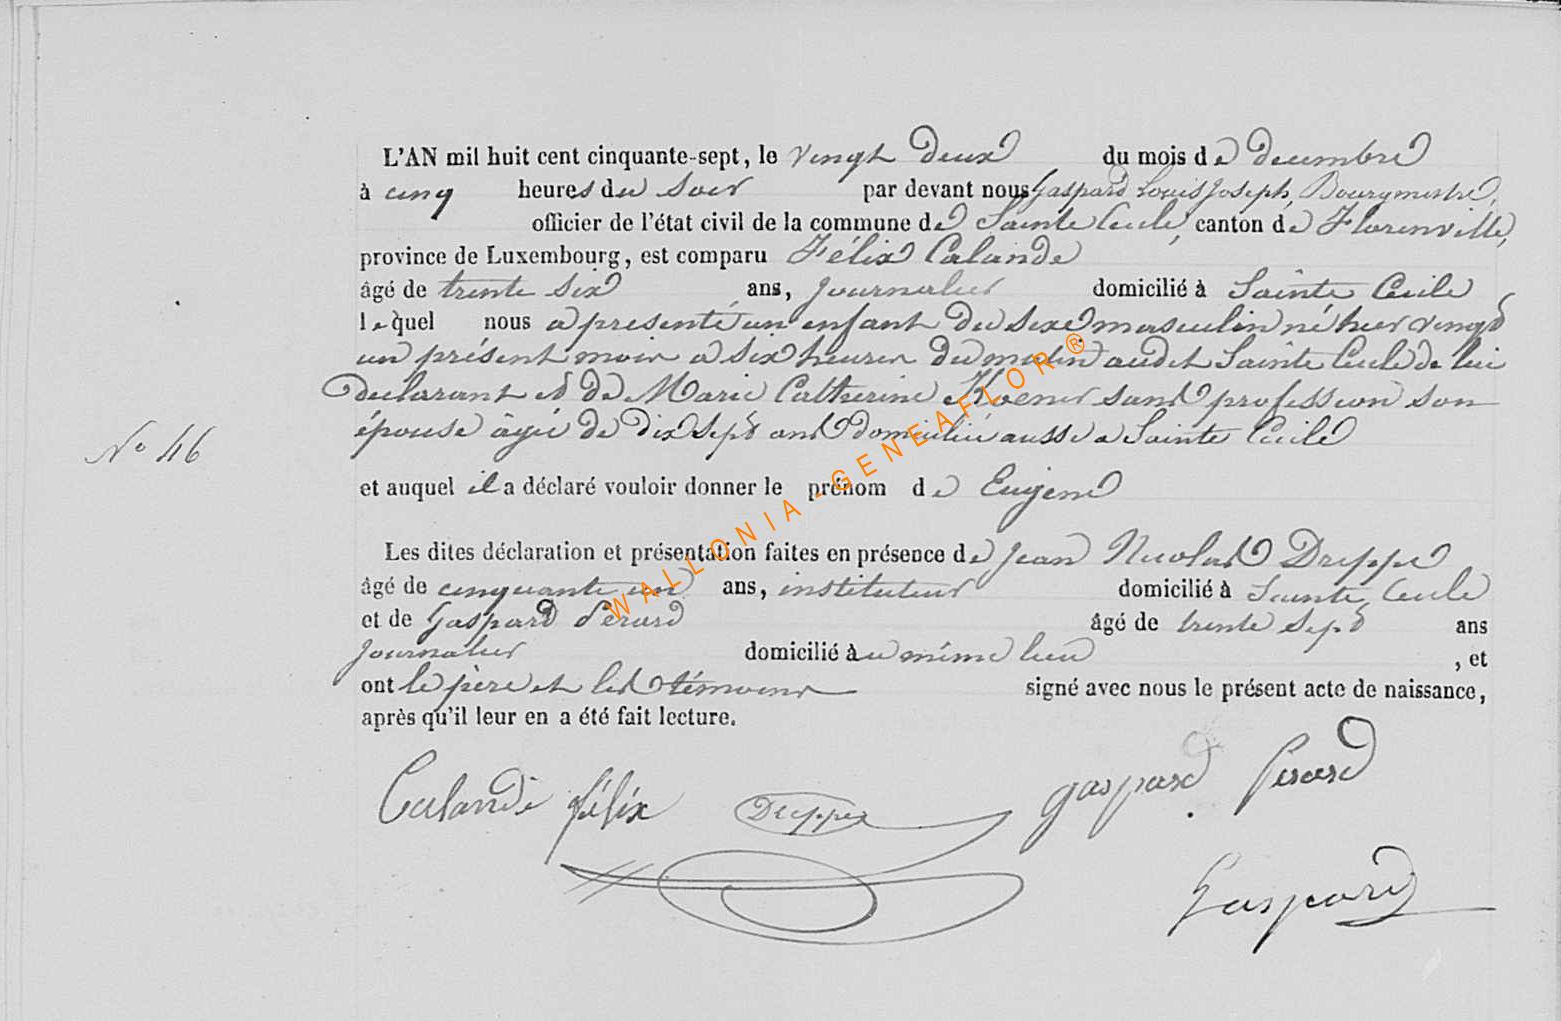 L'AN mil huit cent cinquante-sept, le vingt deux du mois de decembre
à cinq heures du soir par devant nous Gaspard Louis Joseph, Bourgmestre,
officier de l'état civil de la commune de Sainte Cecile, canton de Florenville,
province de Luxembourg, est comparu Félix Calande
âgé de trente six ans, journalier domicilié à Sainte Cecile
lequel nous a présenté un enfant du sexe masculin né hier vingt
un présent mois a six heures du matin audit Sainte Cecile de lui
declarant et de Marie Catherine Koener sans profession son
épouse âgée de dix sept ans domiciliée aussi a Sainte Cecile
No 46
et auquel il a déclaré vouloir donner le prénom de Eugène
Les dites déclaration et présentation faites en présence de Jean Nicolas Dreppe
âgé de cinquante un ans, instituteur domicilié à Sainte Cecile
et de Gaspard Pérard âgé de trente sept ans
journalier domicilié au même lieu, et
ont le père et les témoins signé avec nous le présent acte de naissance,
après qu'il leur en a été fait lecture.
Calande félix Dreppe gaspard Perard
Gaspard
WALLONIA-GENEAFLOR®